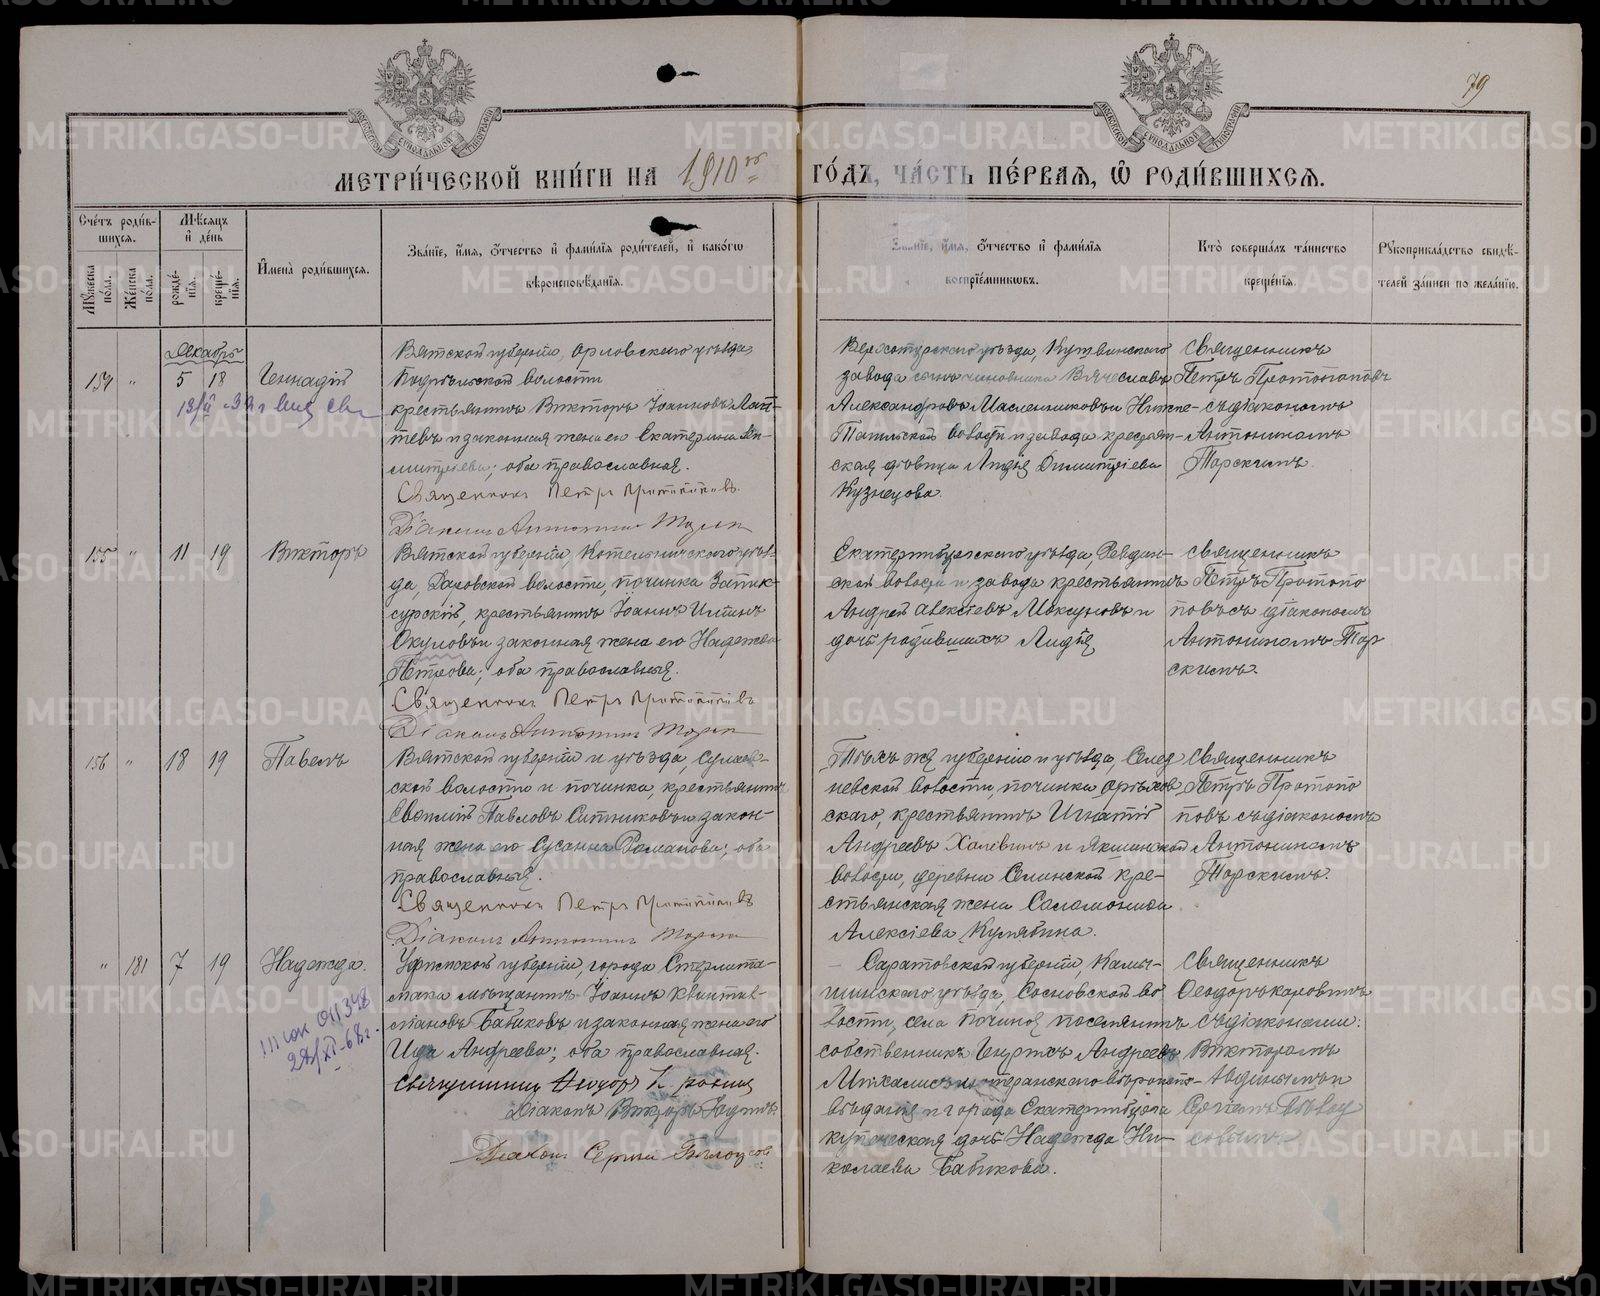 79
МЕТРИ́ЧЕСКОЙ КНИ́ГИ НА 1910й ГО́ДЪ, ЧА́СТЬ ПЕ́РВАЯ, Ѡ РОДИ́ВШИХСЯ.
Сче́тъ роди́вшихся.
Му́жеска по́ла.
Же́нска по́ла.
Мѣ́сяцъ и де́нь
рожде́нїя.
креще́нїя.
Имена̀ роди́вшихся.
Зва́нїе, и́мя, ѻ́тчество и фами́лїя роди́телей, и како́гѡ
вѣроисповѣ́данїя.
Зва́нїе, и́мя, ѻ́тчество и фами́лїя
воспрїе́мникѡвъ.
Кто̀ соверша́лъ та́инство
креще́нїя.
Рꙋкоприкла́дство свидѣ́-
телей за́писи по жела́нїю.
Декабрь
154 " 5 18 Геннадій
Вятской губерніи, Орловскаго уѣзда,
Подрѣльской волости
крестьянинъ Викторъ Іоанновъ Лап-
тевъ и законная жена его Екатерина Ди-
митріева; оба православная.
Священникъ Петръ Протопоповъ
Діаконъ Антонинъ Торск
Верхотурскаго уѣзда, Кушвинскаго
завода сынъ чиновника Вячеславъ
Александровъ Масленниковъ и Нижне-
Тагильской волости и завода крестьян-
ская дѣвица Лидія Димитріева
Кузнецова.
Священникъ
Петръ Протопоповъ
съ діакономъ
Антониномъ
Торскимъ.
155 " 11 19 Викторъ
Вятской губерніи, Котельническаго уѣз-
да, Даровской волости, починка
крестьянинъ Іоаннъ
Окуловъ и законная жена его Надежда
Петрова; оба православныя.
Священникъ Петръ Протопоповъ
Діаконъ Антонинъ Торск
Екатеринбургскаго уѣзда, Ревдин-
ской волости и завода крестьянинъ
Андрей Алексѣевъ Мокрушовъ и
дочь родившихъ Лидія
Священникъ
Петръ Протопо
повъ съ діакономъ
Антониномъ Тор
скимъ.
156 " 18 19 Павелъ
Вятской губерніи и уѣзда,
ской волости и починка, крестьянинъ
Евсилій Павловъ Ситниковъ и закон-
ная жена его Сусанна Романова; оба
православныя.
Священникъ Петръ Протопоповъ
Діаконъ Антонинъ Торск
Тѣхъ же губерніи и уѣзда, Селез
невской волости, починка Орѣхов
скаго, крестьянинъ Игнатій
Андреевъ Халевинъ и Якшинской
волости, деревни Селинской кре-
стьянская жена Саломонида
Алексіева Кулябина.
Священникъ
Петръ Протопо
повъ съ діакономъ
Антониномъ
Торскимъ.
" 181 7 19 Надежда.
Уфимской губерніи, города Стерлита-
мака мѣщанинъ Іоаннъ Квинтил-
ліановъ Бабиковъ и законная жена его
Ида Андреева; оба православная.
Діаконъ Викторъ Юдинъ
Діаконъ Сергій
Саратовской губерніи, Камы-
шинскаго уѣзда, Сосновской во
лости, села Починоя поселянинъ
собственникъ Генрихъ Андреевъ
города Екатеринбурга
купеческая дочь Надежда Ни-
колаева Бабикова.
Священникъ
Ѳеодоръ Коровинъ
съ діаконами:
Викторомъ
Юдинымъ и
Сергіемъ
METRIKI.GASO-URAL.RU